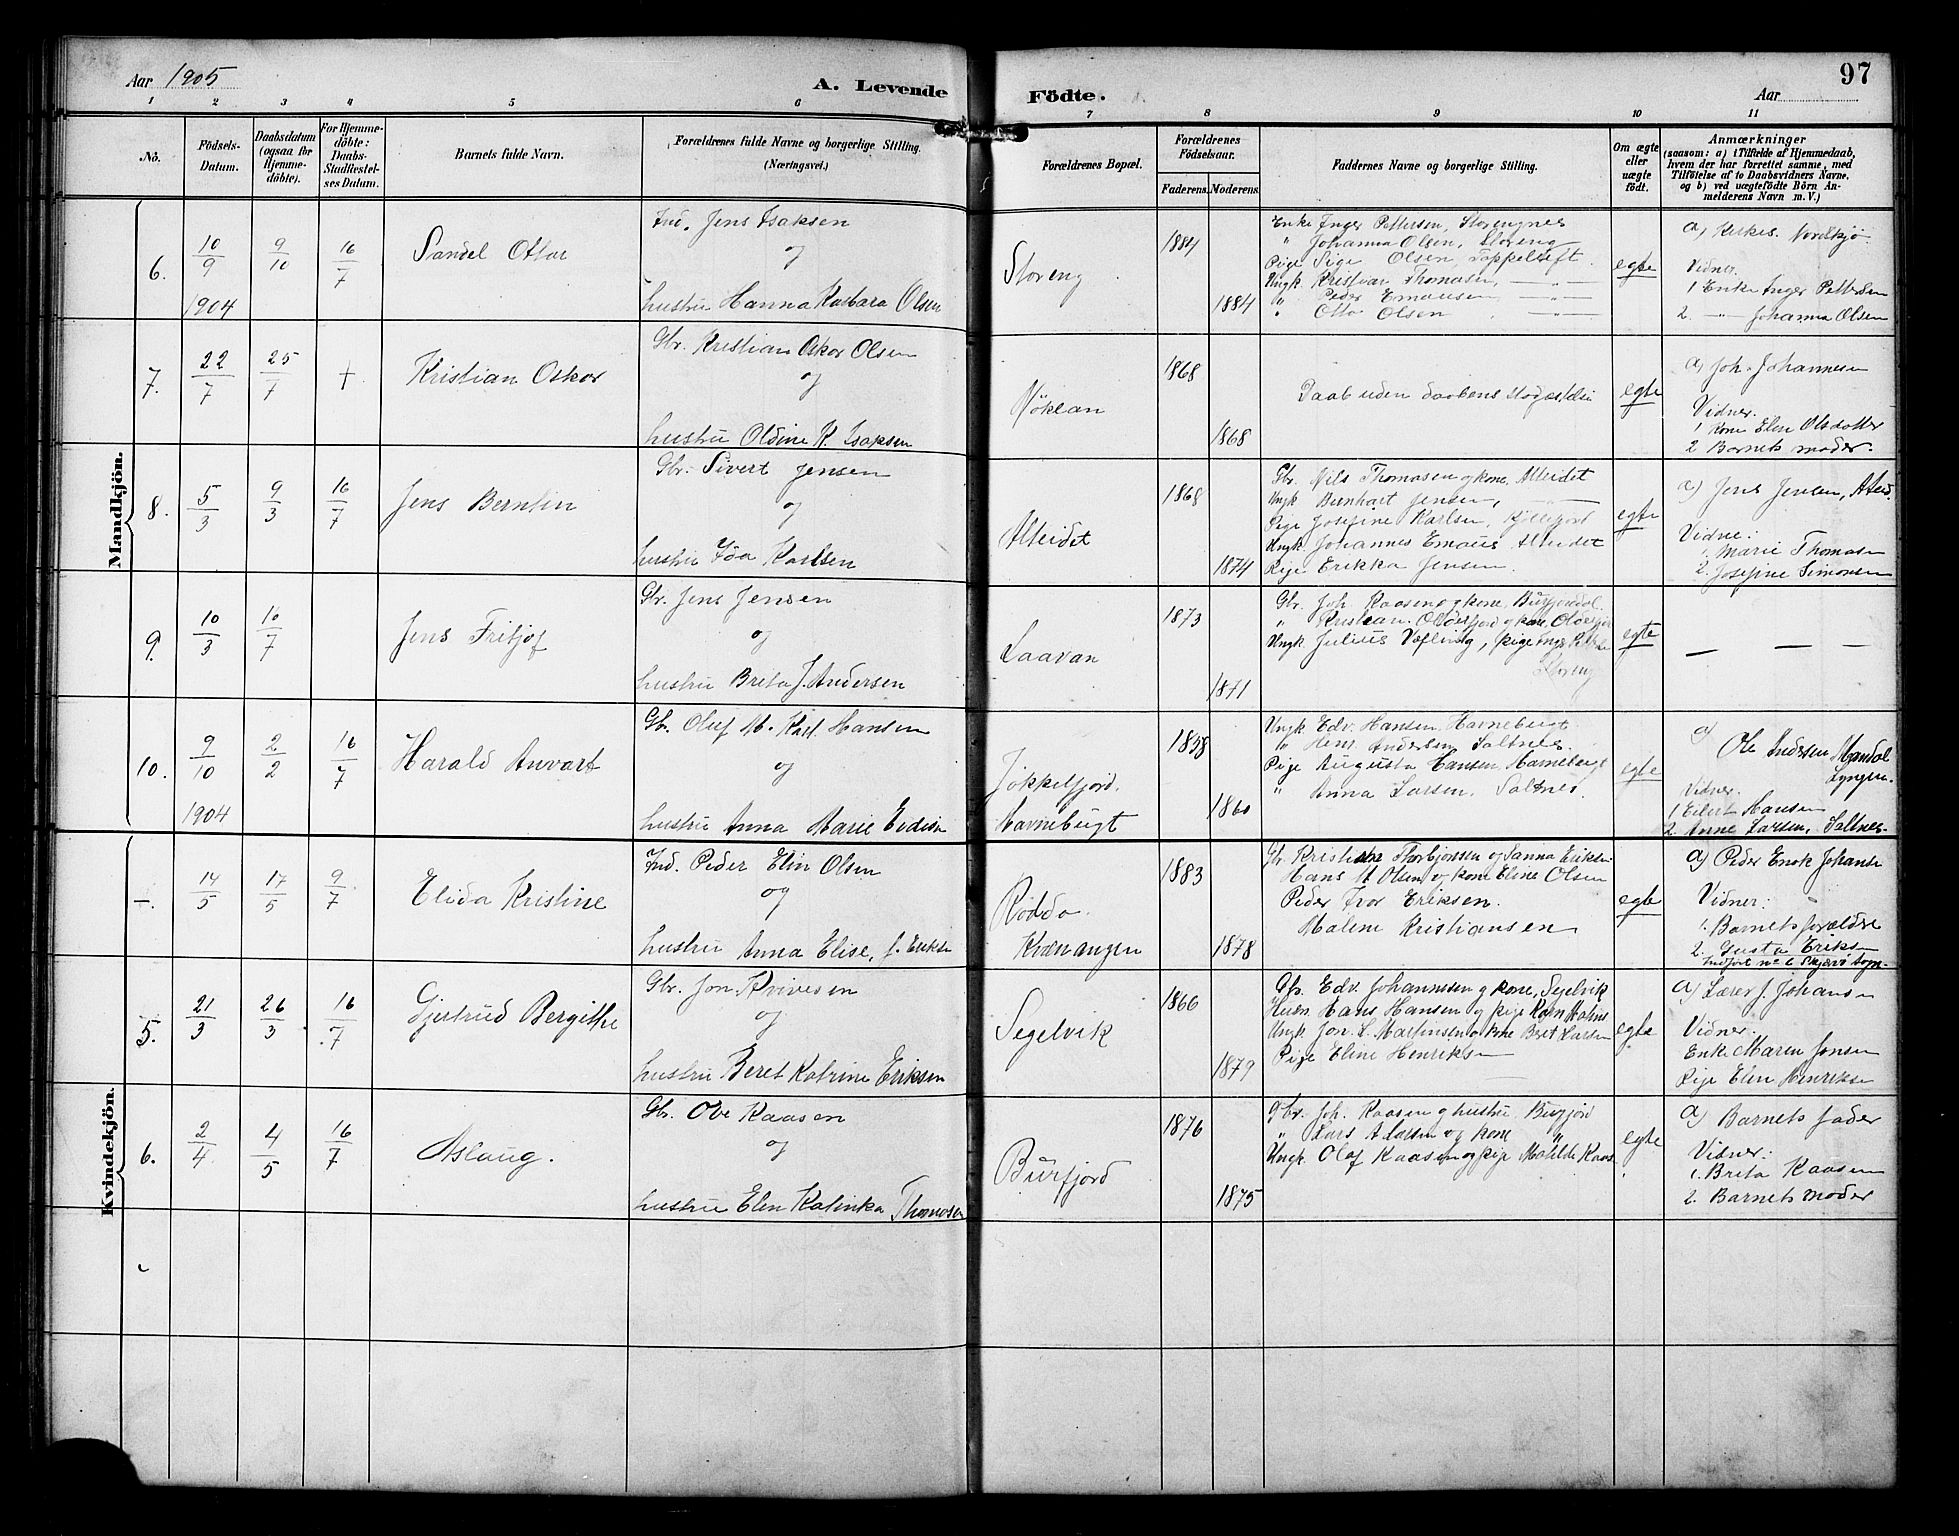 Aar 1905
A. Levende Födte.
Aar
97
1 2 3 4 5 6 7 8 9 10 11
No.
Födsels-Datum.
Daabsdatum (ogsaa for Hjemme-döbte).
For Hjemme-döbte: Daabs-Stadfæstel-ses Datum.
Barnets fulde Navn.
Forældrenes fulde Navne og borgerlige Stilling. (Næringsvei.)
Forældrenes Bopæl.
Forældrenes Födselsaar.
Faderens. Moderens.
Faddernes Navne og borgerlige Stilling.
Om ægte eller uægte födt.
Anmærkninger
(saasom: a) i Tilfælde af Hjemmedaab, hvem der har forrettet samme, med Tilföielse af to Daabsvidners Navne, og b) ved uægtefödte Börn An-melderens Navn m. V.)
Mandkjön.
6. 10/9 1904 9/10 16/7
Sandel Ottar
Ind. Jens Isaksen
og
hustru Hanna Barbara Olsen
Storeng
1884
1884
Enke Inger Pettersen, Storengnes
" Johanna Olsen, Storeng
Pige Sige Olsen, Toppeltift
Ungk Kristian Thomasen, — " —
" Peder Emausen — " —
" Otto Olsen — " —
egte
a) Kirkes. Nordkjø
Vidner.
1 Enke Inger Pettersen
2. — " — Johanna Olsen
7. 22/7 25/7 +
Kristian Oskar
Gbr. Kristian Oskar Olsen
og
hustru Oldine K. Isaksen
Jøklan
1868
1868
Daab uden daabens Stadfæstelse
egte
a) Joh. Johannesen
Vidner.
1 Kone Elen Olsdatter
2 Barnets moder.
8. 5/3 9/3 16/7
Jens Berntin
Gbr. Sivert Jensen
og
hustru Ida Karlsen
Alteidet
1868
1874
Gbr. Nils Thomasen og kone, Alteidet
Ungk Bernhart Jensen, — " —
Pige Josefine Karlsen, Kjøllefjord
Ungk. Johannes Emaus Alteidet
Pige Erikka Jensen.
egte
a) Jens Jensen, Alteid.
Vidne:
1. Marie Thomasen
2. Josefine Simonsen
9. 10/3 16/7
Jens Fritjof
Gbr. Jens Jensen
og
hustru Brita J. Andersen
Laavan
1873
1871
Gbr. Joh Kaasen og kone, Burfjorddal.
" Kristian Olderfjord og kone Olderfjor
Ungk Julius Væflung, pige
Storeng
egte
— — —
10. 9/10 1904 2/2 16/7
Harald Anvart
Gbr. Oluf M. Karl Hansen
og
hustru Anna Marie Evdisen
Jøkkelfjord,
Havnebugt
1858
1860
Ungk Edv. Hansen, Havnebugt
" Henr. Andersen Saltnes.
Pige Augusta Hansen Havnebugt
" Anna Larsen, Saltnes.
egte
a)
Ole Andersen Mandal
Lyngen.
Vidner.
1 Eilert Hansen
2. Anne Larsen, Saltnes.
Kvindekjön.
—. 14/5 17/5 9/7
Elida Kristine
Ind. Peder Elin Olsen
og
hustru Anna Elise, f. Eriksen
Rødda.
Kvænangen
1883
1878
Gbr Kristian Thorbjørssen og Sanna Eriksen
Hans M Olsen og kone Eline Olsen
Peder Ivar Eriksen.
Malene Kristiansen
egte
a) Peder Enok Johansen
Vidner:
1. Barnets forældre
2. Gusta Eriksen
Indført no 6 Skjervø Sogn.
5. 21/3 26/3 16/7
Gjertrud Bergithe
Gbr. Jon Kvivesen
og
hustru Beret Katrine Eriksen
Segelvik
1866
1879
Gbr. Edv Johannesen og kone, Segelvik
Husm. Hans Hansen og pige Karn Maline
Ungk Jon. L. Martinsen og kone Beret Larsen
Pige Eline Henriksen
egte
a) Lærer J. Johansen
Vidner.
Enke Maren Jonsen
Pige Elen Henriksen
6. 2/4 4/5 16/7
Aslaug.
Gbr. Ove Kaasen
og
hustru Elen Kalinka Thomasen
Burfjord
1876
1875
Gbr. Joh. Kaasen og hustru Burfjord
" Lars A Larsen og kone "
Ungk. Olaf Kaasen og pige Matilde Kaas.
egte
a) Barnets fader
Vidner:
1. Brita Kaasen
2. Barnets moder